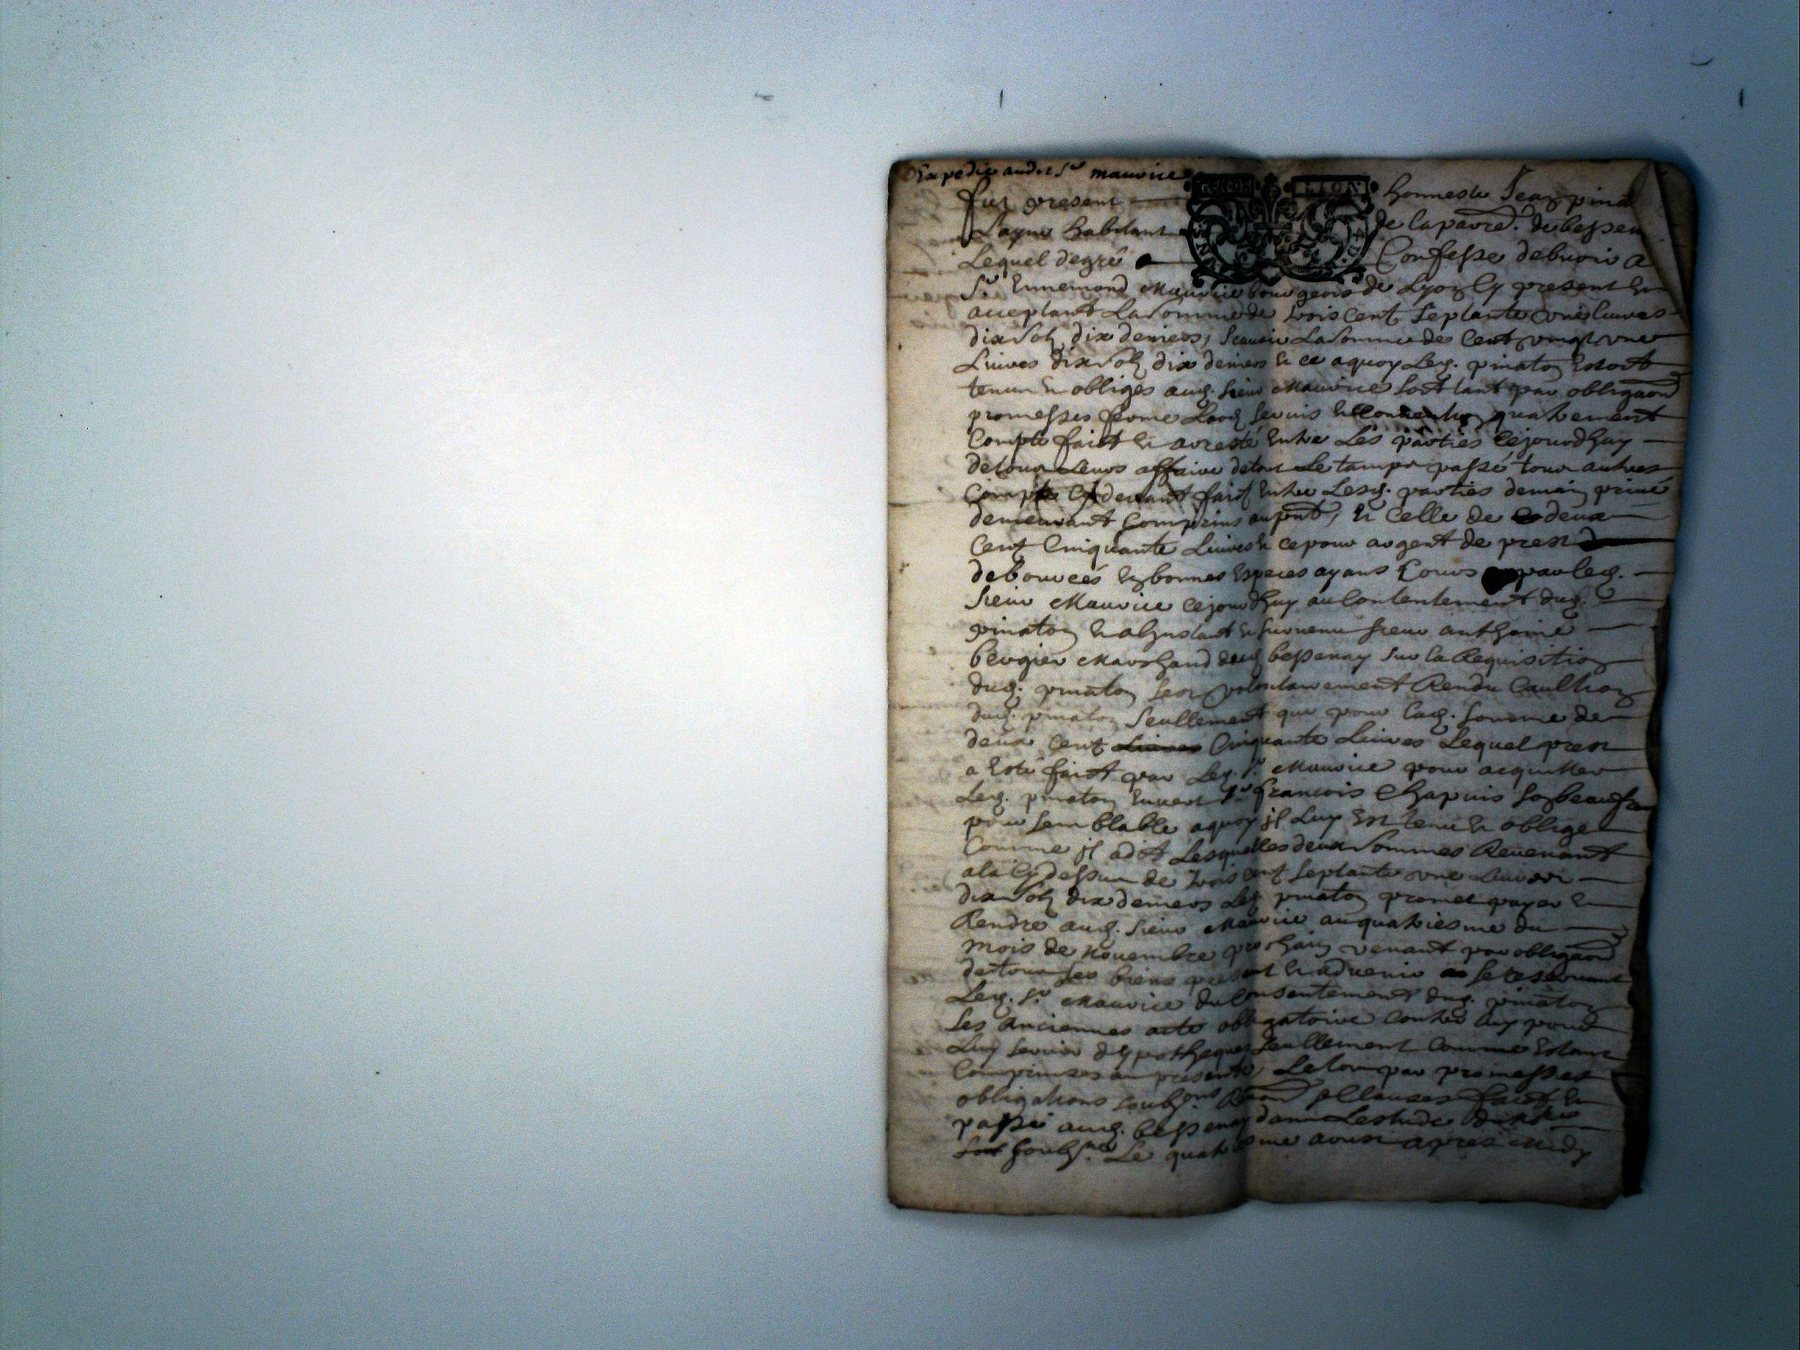 Expedie audit Sr maurice
fut present honneste Jean pina
Layne habitant de la parre. de bessen
Lequel de gré Confesse debuoir a
Sr Ennemond Maurice bourgeois de Lyon Cy present Et
acceptant La somme de trois Cent septante une Liures
dix solz dix deniers, scauoir La somme de Cent vingt une
Liures dix solz dix deniers Et ce a quoy Led. pinaton Estoit
tenu Et obligés aud. sieur Maurice soit tant par obligaon
promesses ferme qu autrement
Compte faict Et aresté Entre Les parties Cejourdhuy
de tous Leurs affaire de tout Le temps passé tous autres
Compte Cy deuant faict Entre Lesd. parties demain priué
demeurant Comprins au pnt, Et Celle de deux
Cent Cinquante Liures Et ce pour argent de prest
debourcés En bonnes Especes ayans Cours par led.
sieur Maurice Cejourdhuy au Contentement dud.
pinaton Et a Linstant Est suruenu sieur anthoine
bergier Marchand dud. bessenay sur la Requisition
dud. pinaton sest volontairement Rendu Caultion
dud. pinaton seullement que pour Lad. somme de
deux Cent Liures Cinquante Liures Lequel prest
a Esté faict par Led. Sr Maurice pour acquitter
Led. pinaton Enuers Sr francois Chapuis son beaufre
pour semblable a quoy jl Luy Est tenu Et oblige
Comme jl a dit Lesquelles deux sommes Reuenant
a la Cy dessus de trois Cent septante une Liures
dix solz dix deniers Led. pinaton promet payer Et
Rendre aud. sieur Maurice au quatriesme du
mois de Nouembre prochain venant par obligaon
de tous ses biens present Et aduenir se reseruant
Led. Sr Maurice du Consentement dud. pinaton
Les anciennes acte obligatoire Contre Luy pour
Luy seruir dypotheque seullement Comme Estant
Comprinses au presente, Le tout par promesses
obligations soubz Clauses faict Et
passé aud. bessenay dans Lestude
soubzné Le quatriesme aoust apres Midy